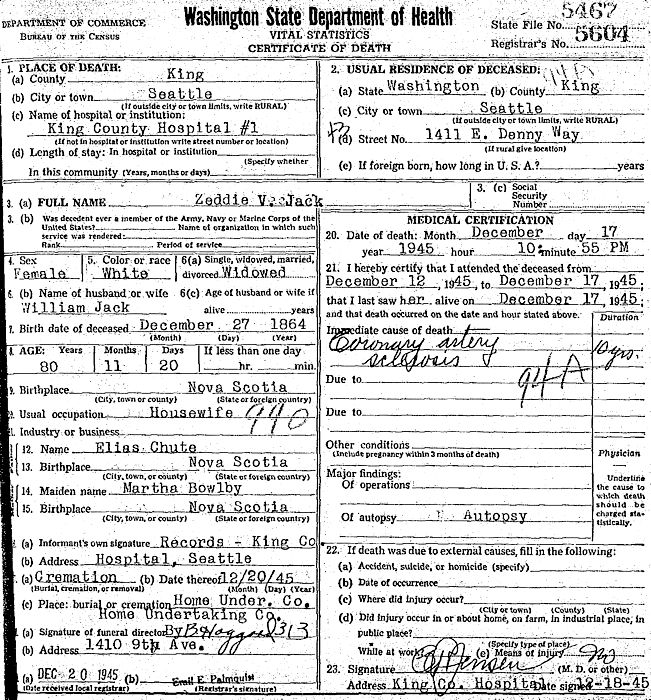 DEPARTMENT OF COMMERCE
BUREAU OF THE CENSUS
Washington State Department of Health
VITAL STATISTICS
CERTIFICATE OF DEATH
State File No. 5467
Registrar's No. 5604
1. PLACE OF DEATH:
(a) County King
(b) City or town Seattle
(If outside city or town limits, write RURAL)
(c) Name of hospital or institution:
King County Hospital #1
(If not in hospital or institution write street number or location)
(d) Length of stay: In hospital or institution
(Specify whether
In this community (Years, months or days)
2. USUAL RESIDENCE OF DECEASED:
(a) State Washington (b) County King
(c) City or town Seattle
(If outside city or town limits, write RURAL)
(d) Street No. 1411 E. Denny Way
(If rural give location)
(e) If foreign born, how long in U. S. A.? years
3. (a) FULL NAME Zeddie V. Jack
3. (b) Was decedent ever a member of the Army, Navy or Marine Corps of the
United States? Name of organization in which such
service was rendered:
Rank Period of service
3. (c) Social
Security
Number
4. Sex
Female
5. Color or race
White
6(a) Single, widowed, married,
divorced Widowed
6 (b) Name of husband or wife
William Jack
6(c) Age of husband or wife if
alive years
7. Birth date of deceased December 27 1864
(Month) (Day) (Year)
8. AGE: Years Months Days If less than one day
80 11 20 hr. min.
9. Birthplace Nova Scotia
(City, town or county) (State or foreign country)
Usual occupation Housewife 990
Industry or business
12. Name Elias Chute
13. Birthplace Nova Scotia
(City, town, or county) (State or foreign country)
14. Maiden name Martha Bowlby
15. Birthplace Nova Scotia
(City, town, or county) (State or foreign country)
(a) Informant's own signature Records - King Co
(b) Address Hospital, Seattle
(a) Cremation (b) Date thereof 12/20/45
(Burial, cremation, or removal) (Month) (Day) (Year)
(c) Place: burial or cremation Home Under. Co.
Home Undertaking Co.
(a) Signature of funeral director By 313
(b) Address 1410 9th Ave.
(a) DEC 20 1945 (b) Emil E. Palmquist
(Date received local registrar) (Registrar's signature)
MEDICAL CERTIFICATION
20. Date of death: Month December day 17
year 1945 hour 10: minute 55 PM
21. I hereby certify that I attended the deceased from
December 12, 1945, to December 17, 1945;
that I last saw her alive on December 17, 1945;
and that death occurred on the date and hour stated above.
Duration
Immediate cause of death
Coronary artery
sclerosis
10 yrs.
94A
Due to
Due to
Other conditions
(Include pregnancy within 3 months of death)
Major findings:
Of operations
Of autopsy Autopsy
Physician
Underline
the cause to
which death
should be
charged sta-
tistically.
22. If death was due to external causes, fill in the following:
(a) Accident, suicide, or homicide (specify)
(b) Date of occurrence
(c) Where did injury occur?
(City or town) (County) (State)
(d) Did injury occur in or about home, on farm, in industrial place, in
public place?
(Specify type of place)
While at work? (e) Means of injury
23. Signature Jensen (M. D. or other)
Address King Co. Hospital Date signed 12-18-45